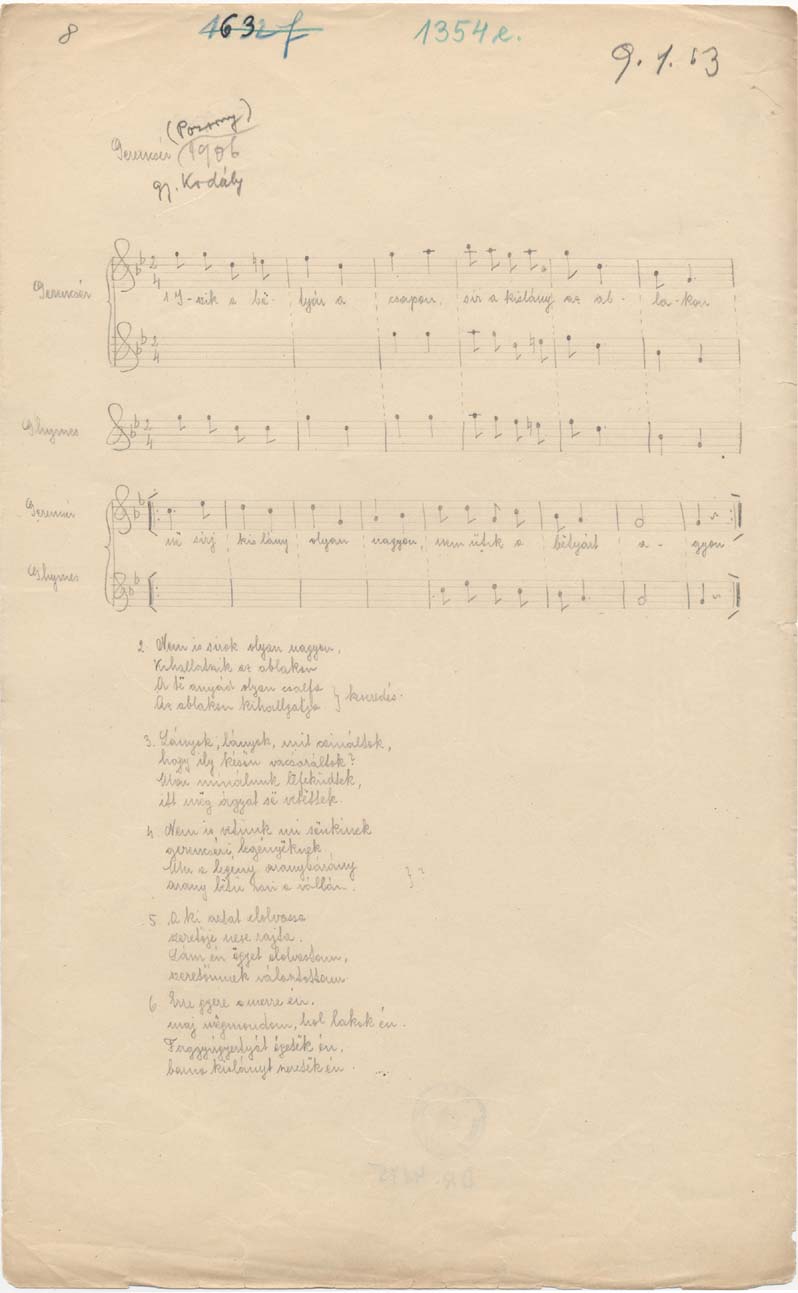 8
1632 f
1354 e.
9. 1. 53
(Pozsony)
Gerencsér (1906
gj. Kodály
Gerencsér
1 I-szik a bë- tyár a csapon, sir a kislány az ab- la-kon
Ghymes
Gerencsér
në sirj kis lány olyan nagyon, nem ütik a bëtyárt a- gyon
Ghymes
2. Nem is sirok olyan nagyon,
Kihallatszik az ablakon
A të anyád olyan csalfa
Az ablakon kihallgatja } keseredés.
3. Lányok, lányok, mit csináltok,
hogy ily késön vacsoráltok?
Mán minálunk lefeküdtek,
itt mëg ágyat së vetëttek.
4 Nem is vetünk mi sënkinek
gerencséri legényëknek.
Mer a legény aranybárány
arany bëtü van a vállán. } ?
5 A ki aztat elolvassa
szeretöje lesz rajta.
Lám én ëgyet elolvastam,
szeretömnek választottam
6 Erre gyere a merre én.
maj mëgmondom, hol lakok én.
Faggyúgyertyát égetëk én,
barna kislányt szeretëk én.